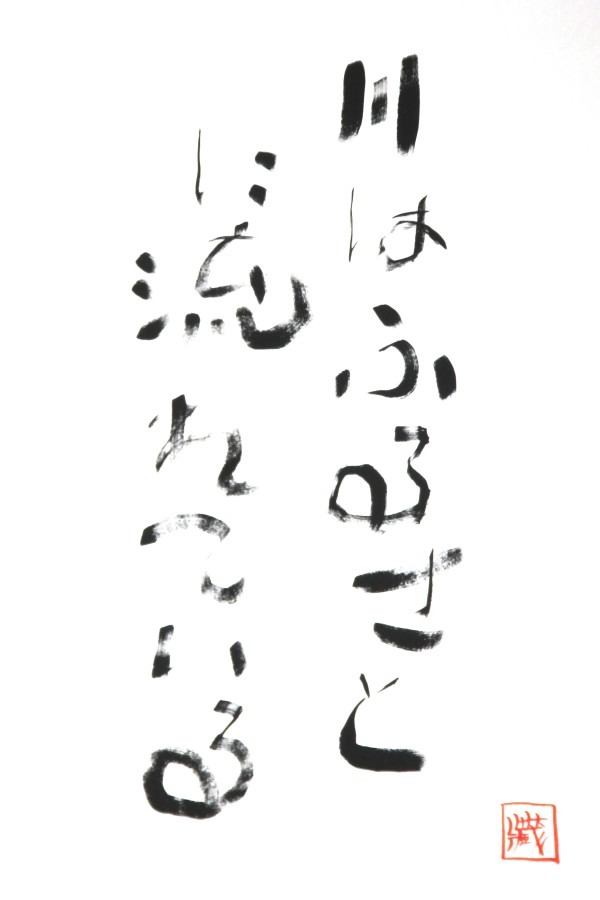 川はふるさと
に流れている